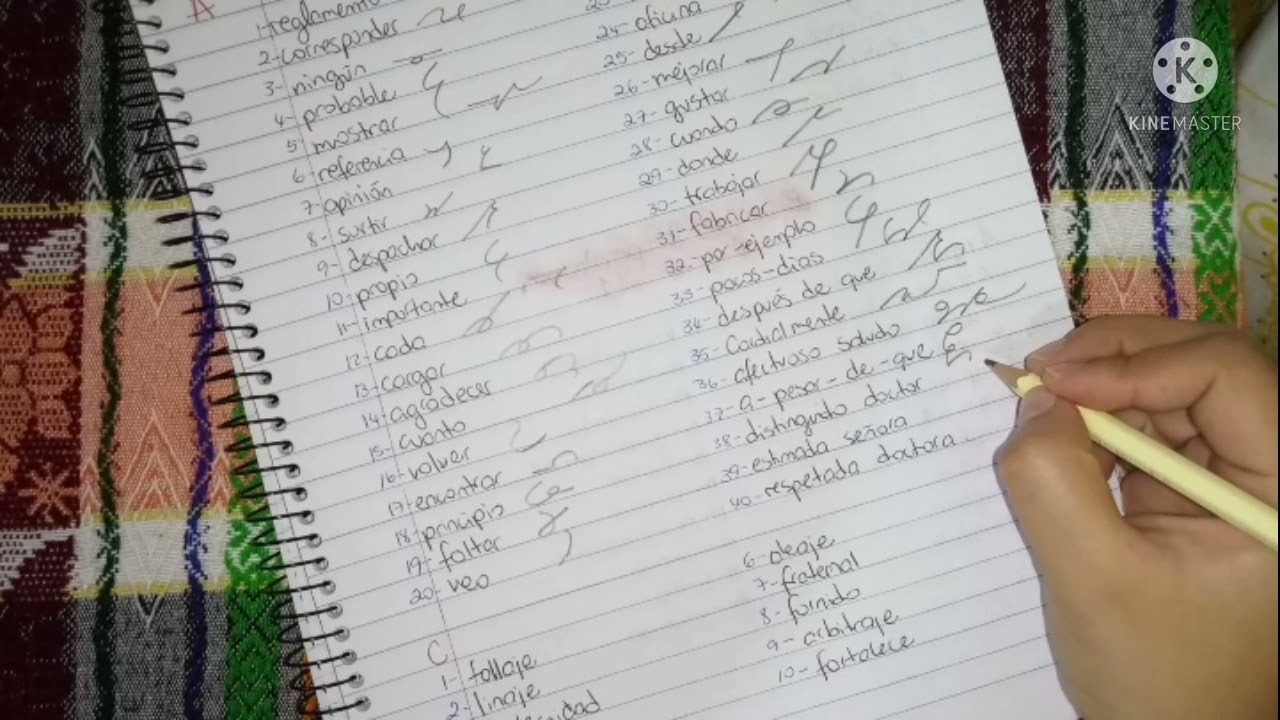 A
1- reglamento
2- corresponder
3- ningún
4- probable
5- mostrar
6- referencia
7- opinión
8- surtir
9- despachar
10- propio
11- importante
12- cada
13- cargar
14- agradecer
15- cuanto
16- volver
17- encontrar
18- principio
19- faltar
20- veo
24- oficina
25- desde
26- mejorar
27- gustar
28- cuando
29- donde
30- trabajar
31- fabricar
32- por-ejemplo
33- pocos-dias
34- después de que
35- Cordialmente
36- afectuoso saludo
37- a-pesar-de-que
38- distinguido doctor
39- estimada señora
40- respetada doctora
C
1- follaje
2- linaje
6- oleaje
7- fraternal
8- fornido
9- arbitraje
10- fortalece
KINEMASTER